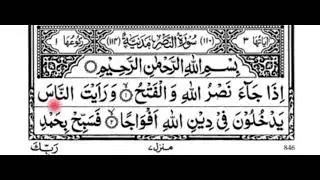 اٰيَاتُهَا ٣ (١١٠) سُوْرَةُ النَّصْرِ مَدَنِيَّةٌ (١١٤) رُكُوْعُهَا ١
بِسْمِ اللّٰهِ الرَّحْمٰنِ الرَّحِيْمِ
اِذَا جَآءَ نَصْرُ اللّٰهِ وَالْفَتْحُ ۙ ١ وَرَاَيْتَ النَّاسَ
يَدْخُلُوْنَ فِىْ دِيْنِ اللّٰهِ اَفْوَاجًا ۙ ٢ فَسَبِّحْ بِحَمْدِ
رَبِّكَ منزل ٧ 846